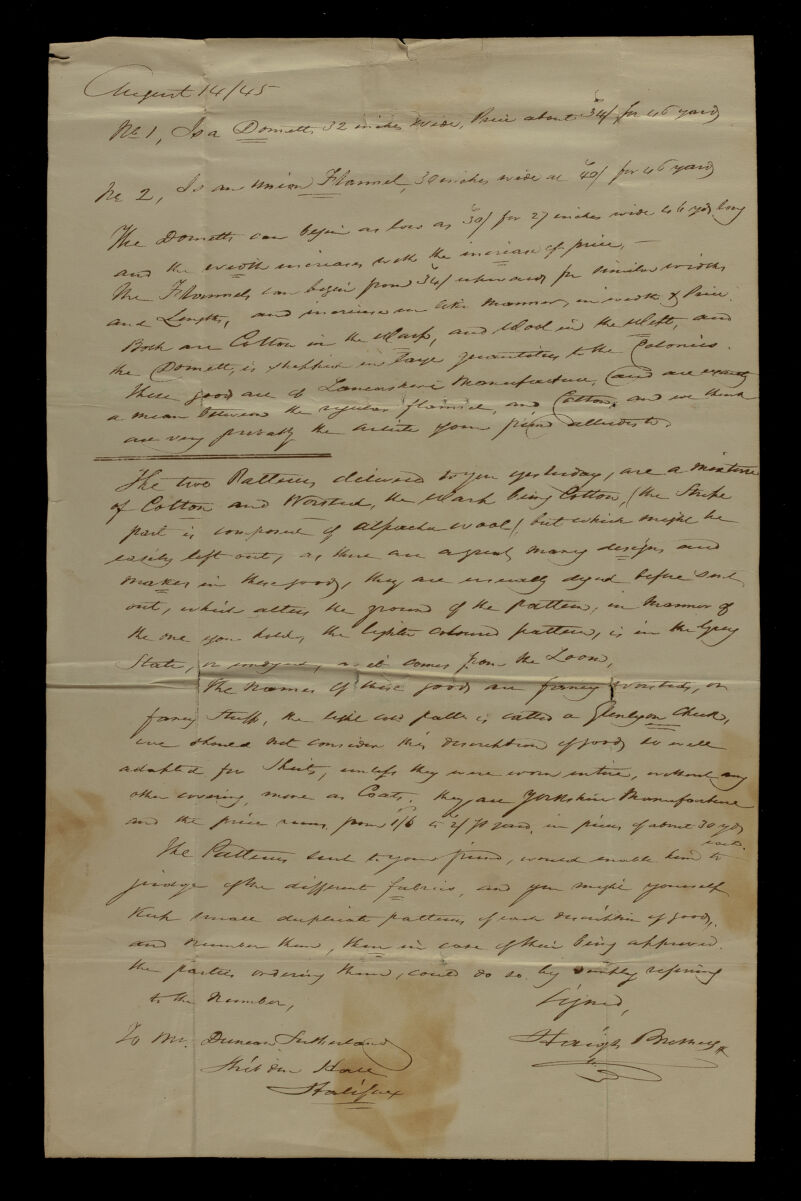 August 14/45
No 1, Is a Dometts 32 inches wide, Price about 34/ for 46 yards
No 2, Is an union Flannel, 30 inches wide at 40/ for 46 yards
The Dometts can begin as low as 30/ for 27 inches wide 46 yds long
and the width increases with the increase of price, —
The Flannels can begin from 34/ upwards for similar widths
and Lengths, and increase in like manner, in width & Price.
Both are Cotton in the Warp, and Wool in the Weft, and
the Dometts, is shipped in large quantities to the Colonies.
These goods are of Lancashire Manufacture, (and are exactly
a mean between the regular flannel, and Cotton, and we think
are very probably the article your friend alludes to.
The two Patterns delivered to you yesterday, are a mixture
of Cotton and Worsted, the Warp being Cotton, (the Stripe
part is composed of alpacha wool) but which might be
easily left out, as there are a great many designs and
makes in these goods, they are usually dyed before sent
out, which alters the ground of the pattern, in manner of
the one you hold, the lighter coloured pattern, is in the Grey
State, or undyed, as it comes from the Loom,
The names of these goods are fancy Worsteds, or
fancy Stuffs, the light cold patten is called a Glenlyon Check,
we should not consider this description of goods so well
adapted for Shirts, unless they were worn entire, without any
other covering, more as Coats. they are Yorkshire Manufacture
and the price runs from 1/6 to 2/ yard, in pieces of about 30 yds
each.
The Patterns sent to your friend, would enable him to
judge of the different fabrics, and you might yourself
keep small duplicate patterns of each description of goods,
and number them, then in case of their being approved
the parties ordering them, could do so by simply refering
to the number,
Signed,
Haigh Brothers
To Mr. Duncan Sutherland
Shibden Hall
Halifax